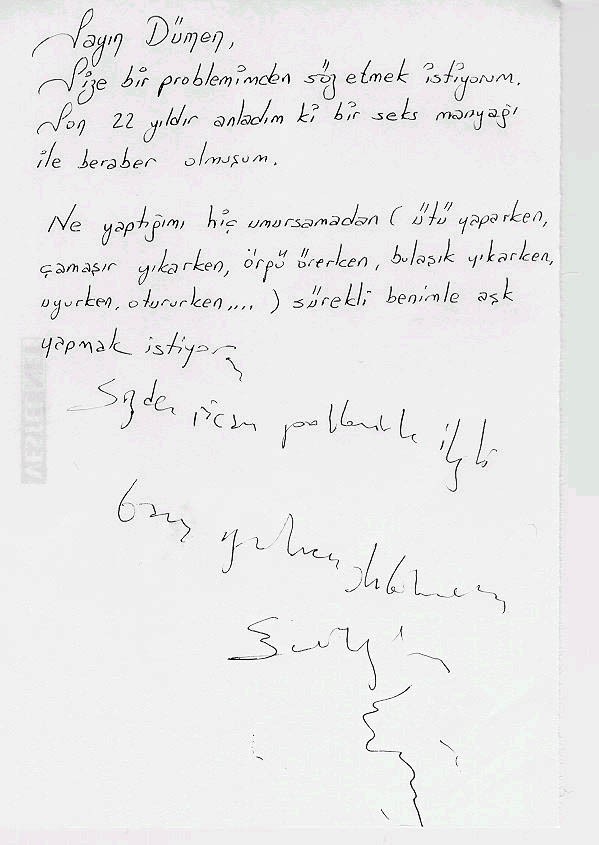 Sayın Dümen,
Size bir problemimden söz etmek istiyorum.
Son 22 yıldır anladım ki bir seks manyağı
ile beraber olmuşum.
Ne yaptığımı hiç umursamadan ( ütü yaparken,
çamaşır yıkarken, örgü örerken, bulaşık yıkarken,
uyurken, otururken,... ) sürekli benimle aşk
yapmak istiyor
Sizden ricam problemimle ilgili
bana yardımcı